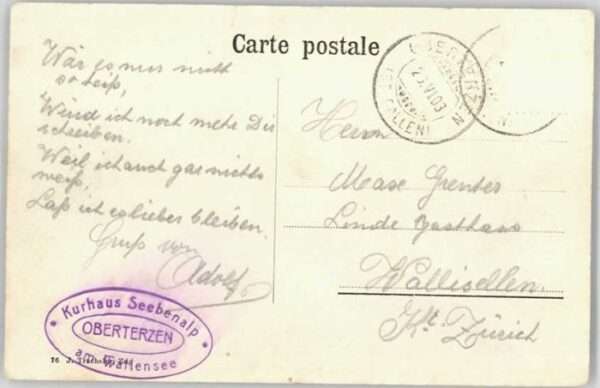 Carte postale
Wär es nur nicht
so heiß,
Würd ich noch mehr Dir
schreiben.
Weil ich auch gar nichts
weiß,
Laß ich es lieber bleiben.
Gruß von
Adolf
Herrn
Linde Gasthaus
Wallisellen.
Kt. Zürich
Kurhaus Seebenalp
OBERTERZEN
am Wallensee
(ST. GALLEN)
VI.03